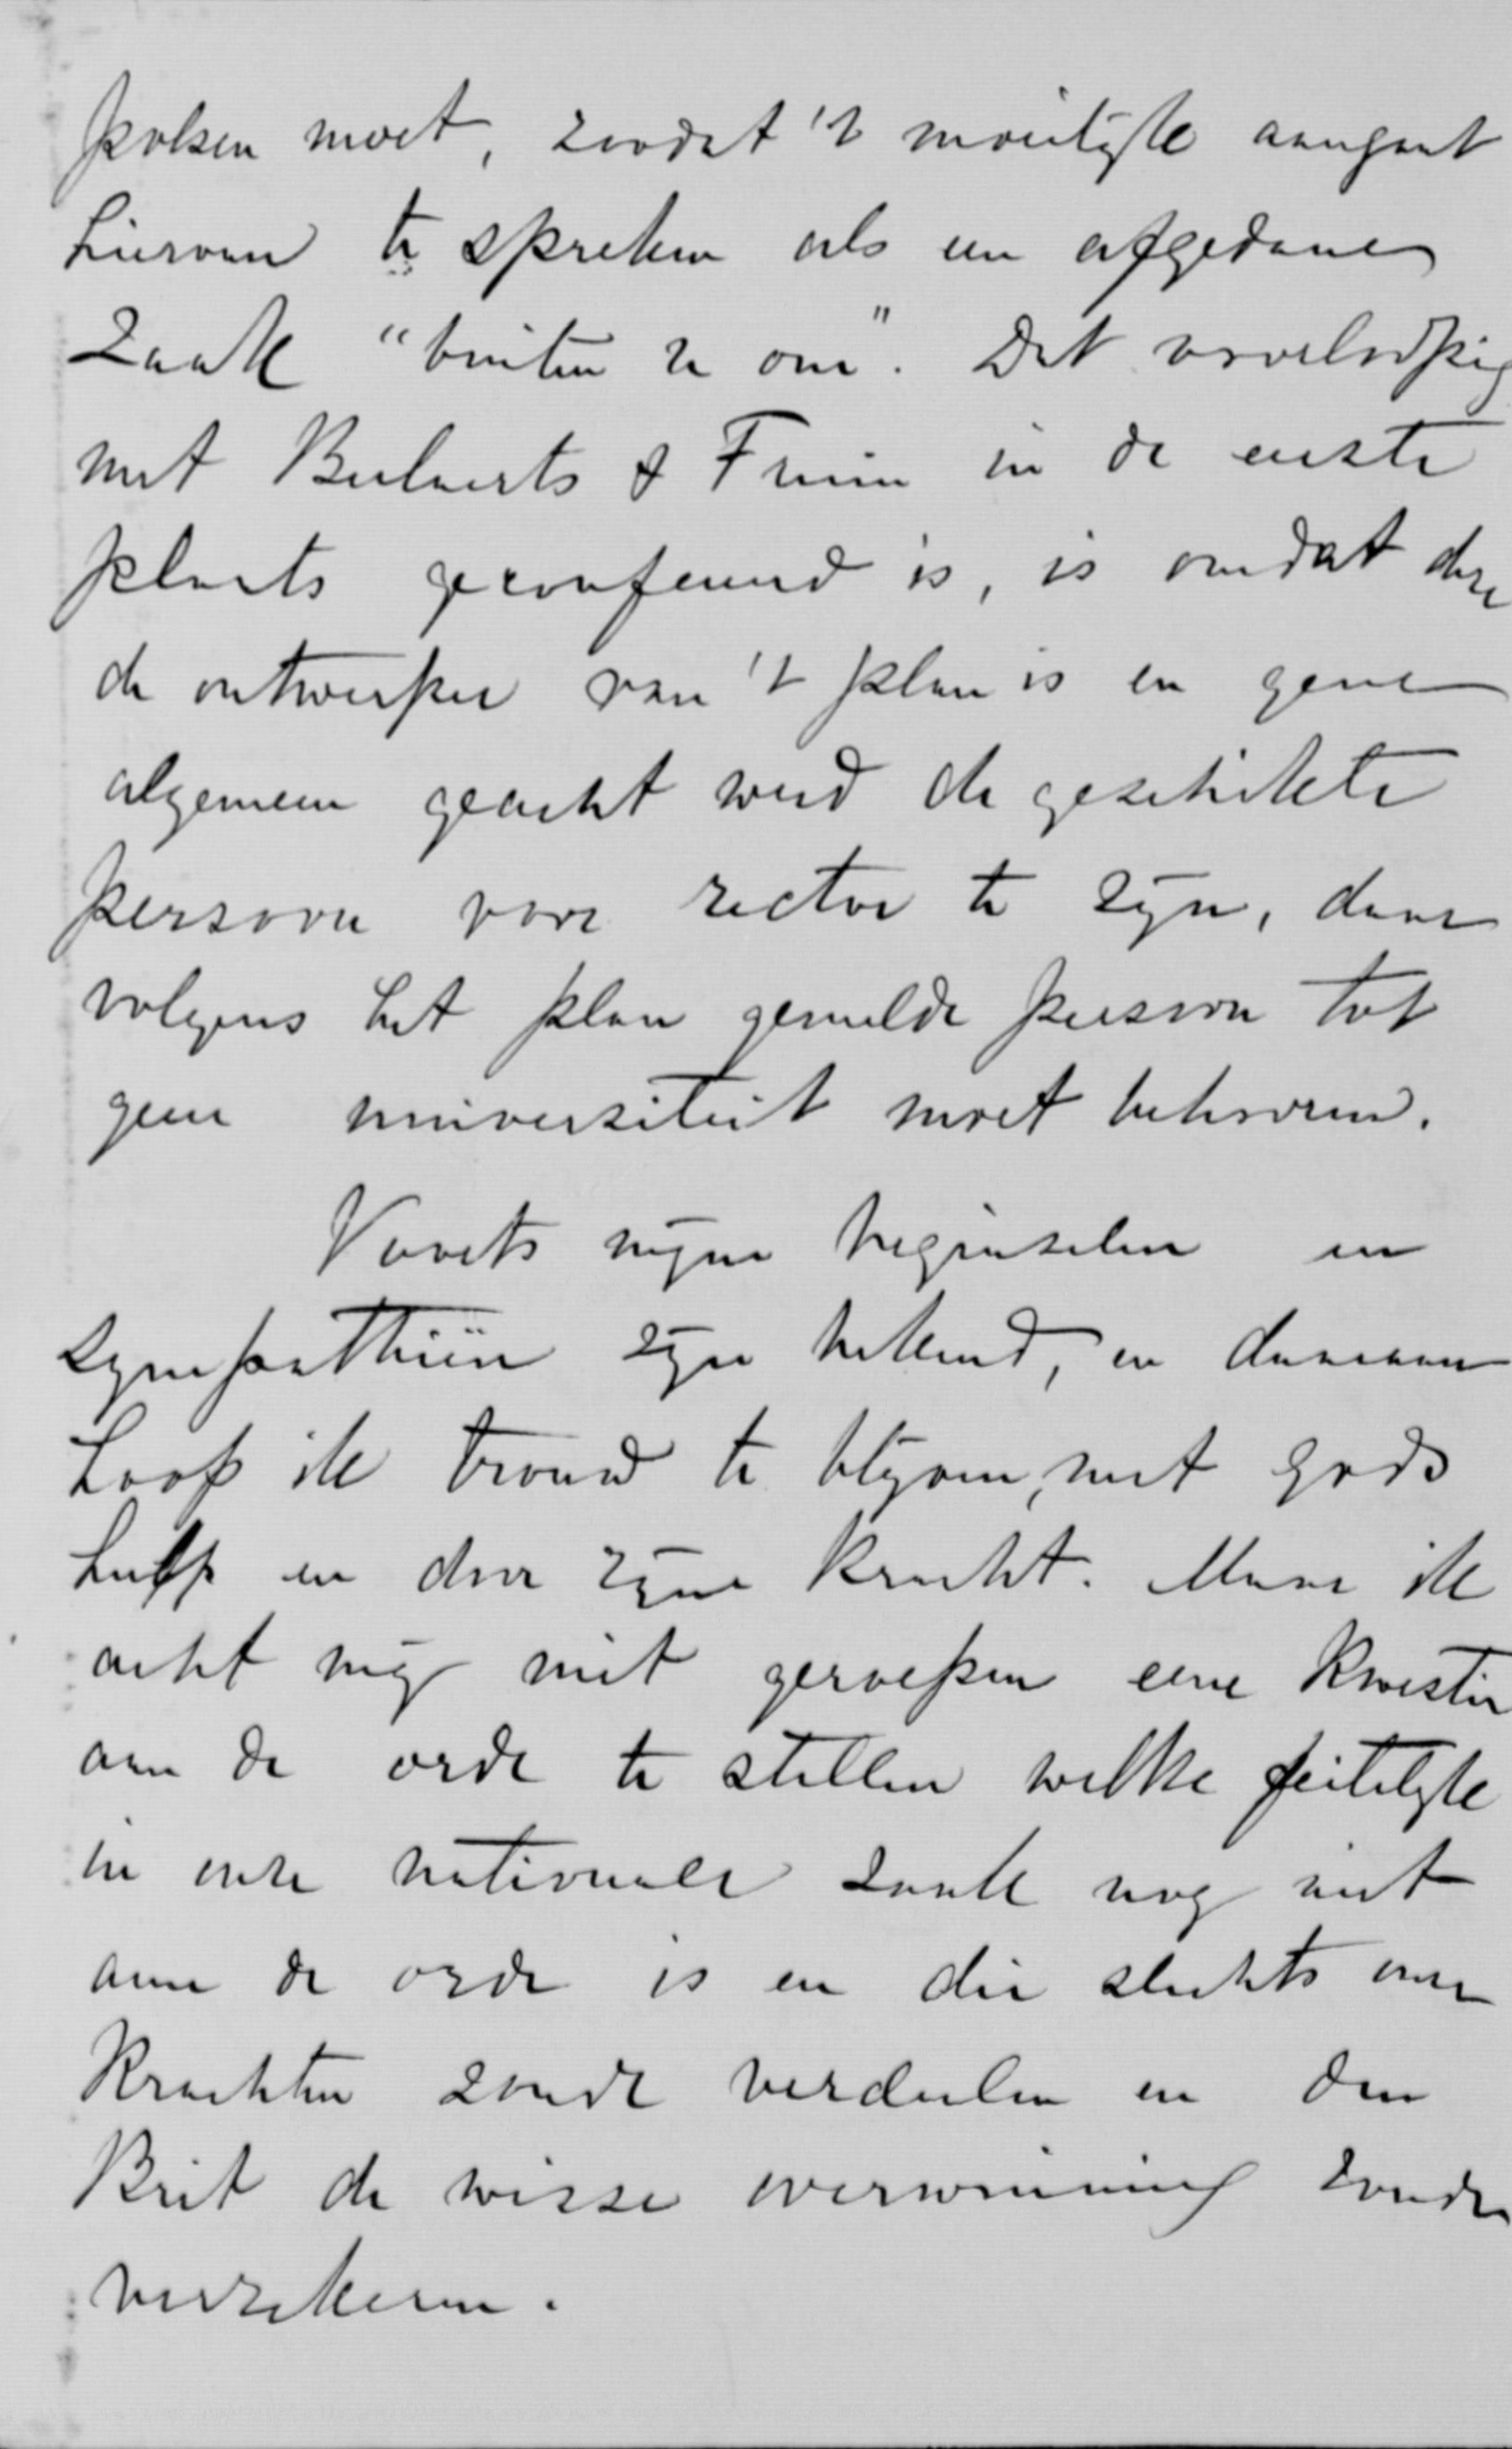 polsen moet, zoodat 't moeilijk aangaat
hiervan te spreken als een afgedane
zaak "buiten ze om". Dat voorloopig
met Beelaerts & Fruin in de eerste
plaats geconfereerd is, is omdat deze
de ontwerper van 't plan is en gene
algemeen geacht werd de geschikte
persoon voor rector te zijn, daar
volgens het plan gemelde persoon tot
geen universiteit moet behooren.
Voorts mijne beginselen en
sympathiën zijn bekend, en daaraan
hoop ik trouw te blijven, met Gods
hulp en door zijne kracht. Maar ik
acht mij niet geroepen eene kwestie
aan de orde te stellen welke feitelijk
in onze nationale zaak nog niet
aan de orde is en die slechts onze
krachten zoude verdeelen en den
Brit de wisse overwinning zoude
verzekeren.